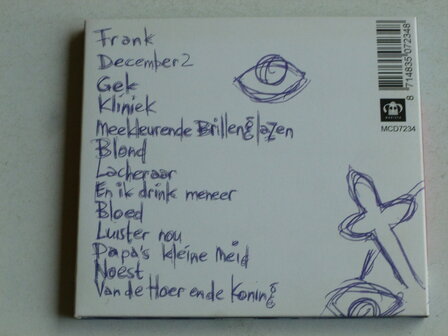 Frank
December 2
Gek
Kliniek
Meekleurende Brillenglazen
Blond
Lacheraar
En ik drink meneer
Bloed
Luister nou
Papa's kleine meid
Noest
Van de Hoer en de Koning
8 714835 072348
MCD7234